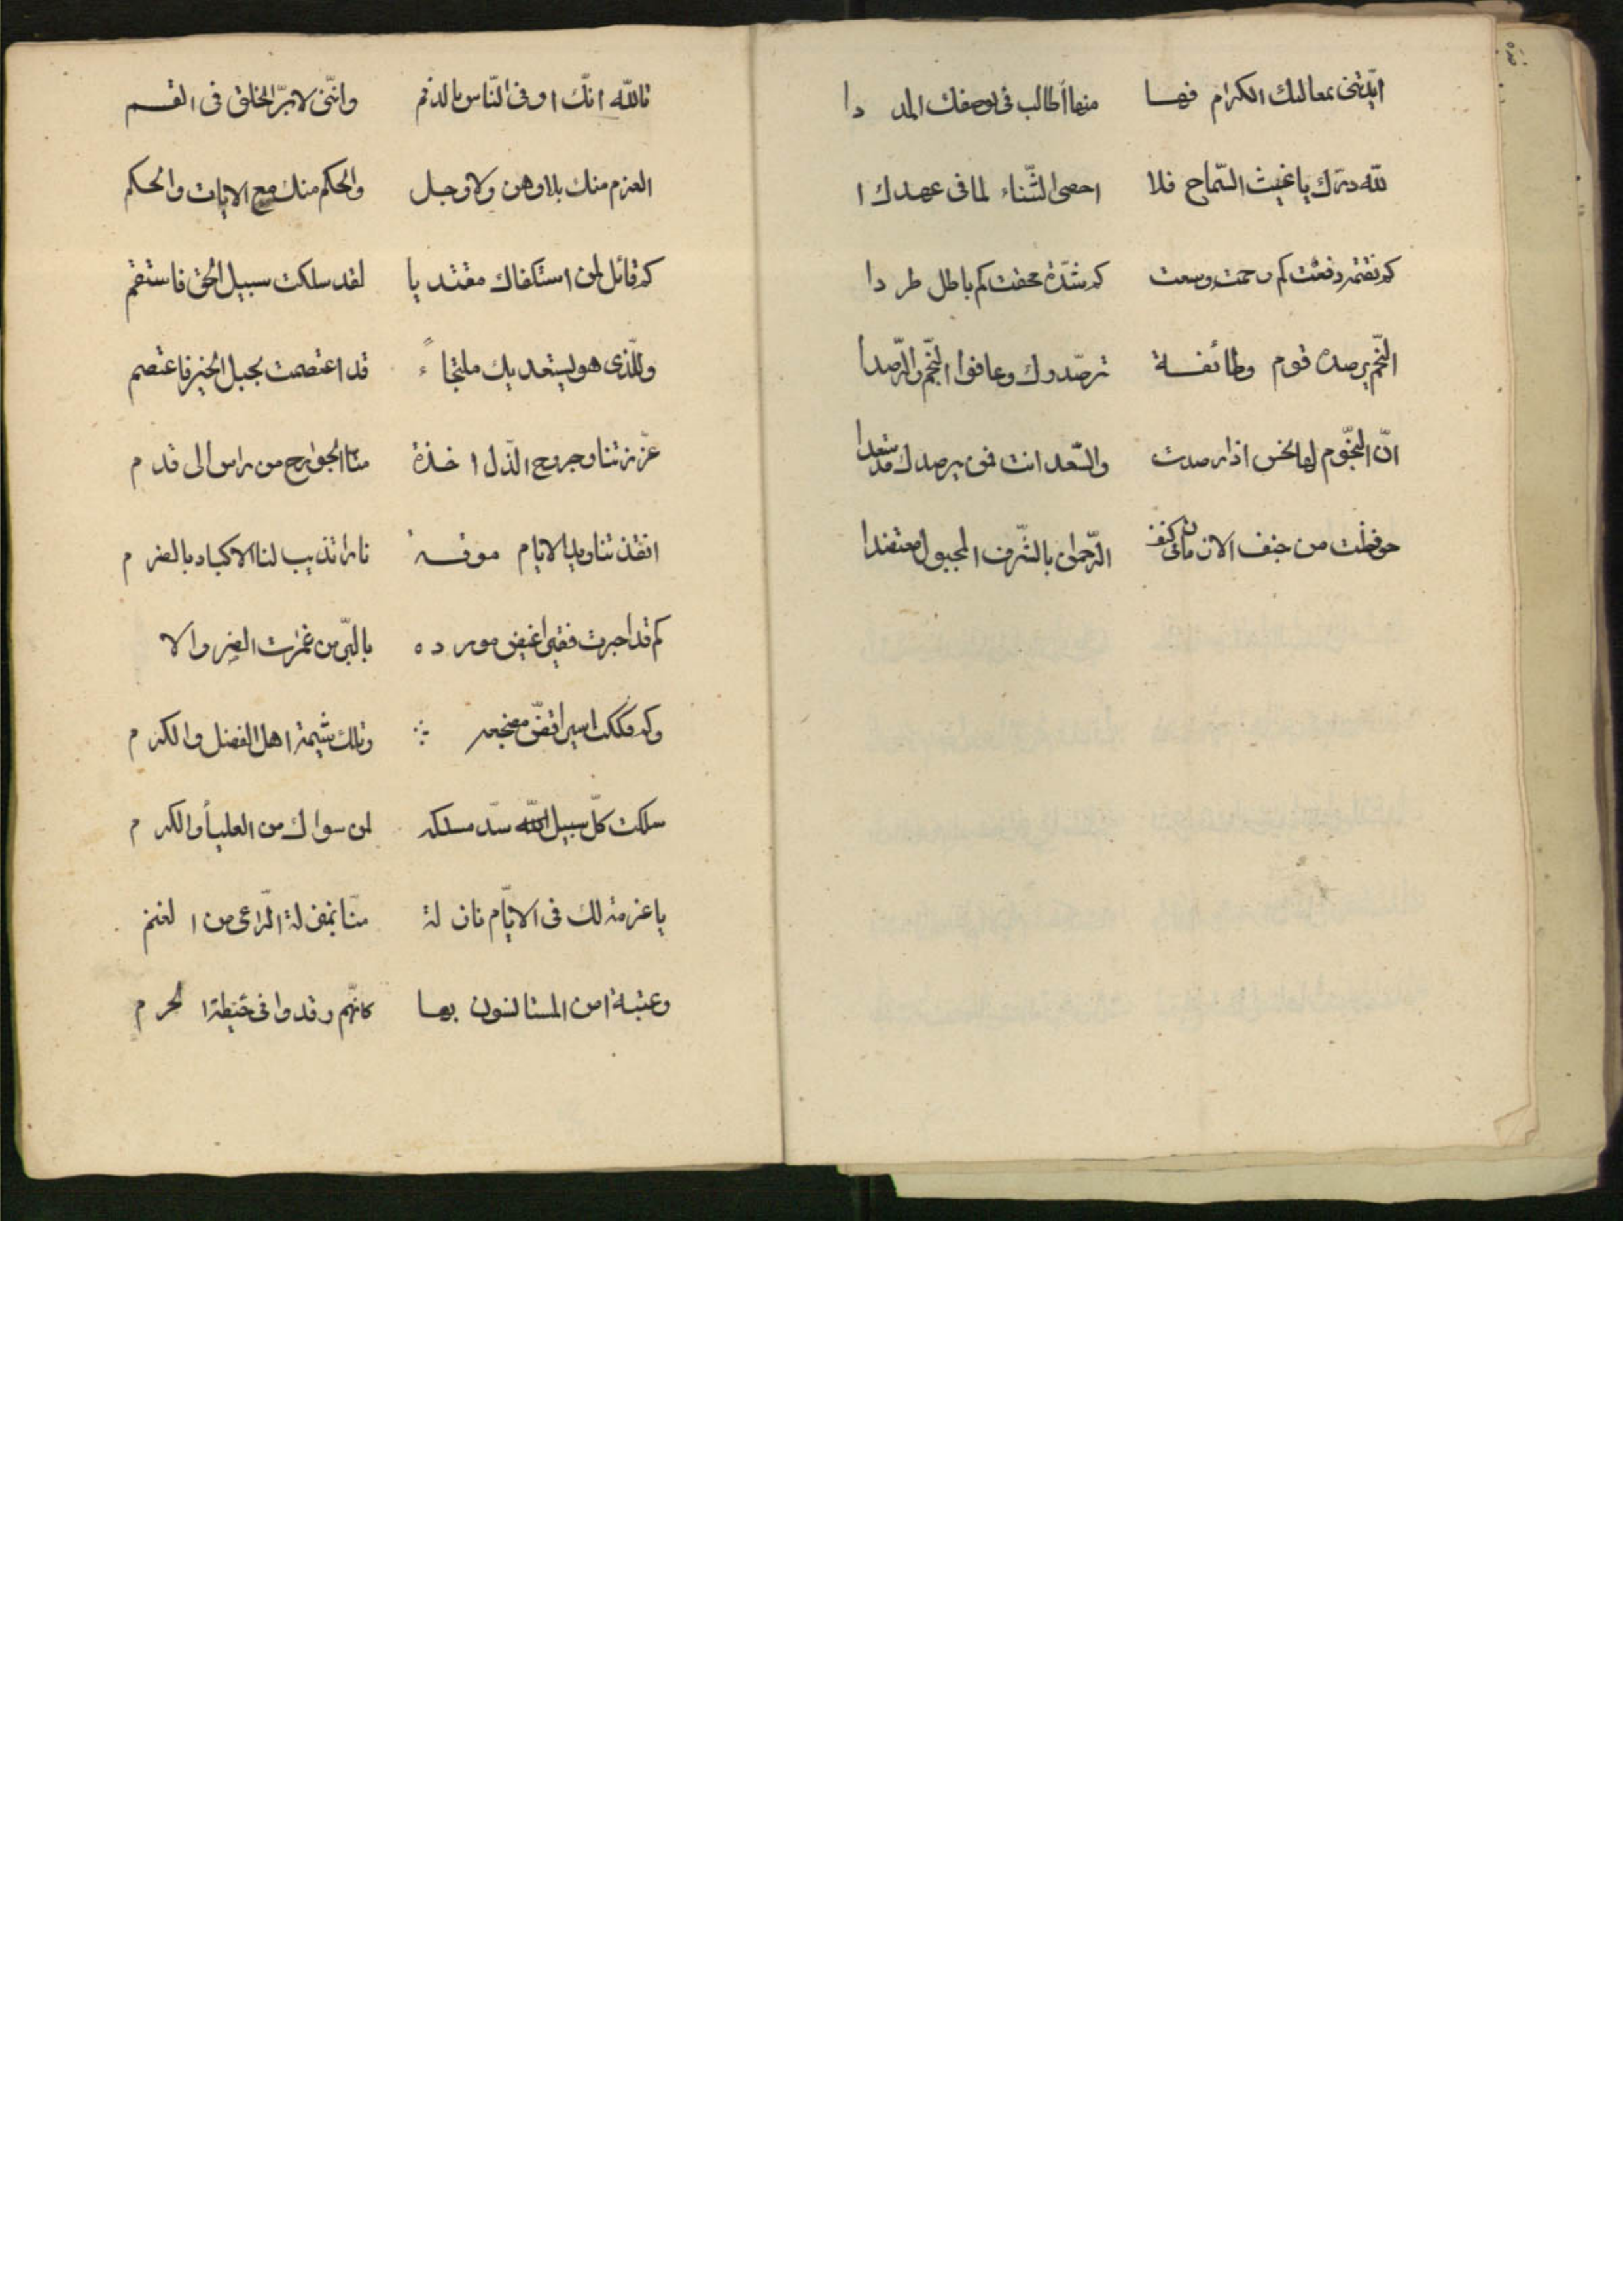 ايّدتنى بمعاليك الكرام فها منها أطالب فى وصفك المددا
لله درّك يا غيث السّماح فلا احصى الثّناء لما فى عهدك ا
كم نقمة دفعت كم رحمت وسعت كم شدّة محقت كم باطل طردا
النّجم يرصده قوم وطائفة ترصّدوك وعافوا النّجم والرّصدا
انّ النّجوم لها نحس اذا رصدت والسّعد انت فمن يرصدك قد سعدا
حوفظت من جنف الازمان فى كنف الرّحمن بالشّرف المجبول معتضدا
تالله انّك اوفى النّاس بالذمم وانّنى لابرّ الخلق فى القسم
العزم منك بلا وهن ولا وجل والحكم منك مع الايات والحكم
كم قائل لمن استكفاك مقتديا لقد سلكت سبيل الحق فاستقم
وللّذى هو يستعديك ملتجاءً قد اعتصمت بحبل الخير فاعتصم
عزّزتنا وجروح الذّل اخذة منّا الجوارح من راس الى قدم
انقذتنا ويد الايام موقدة نارا تذيب لنا الاكباد بالضرم
كم قد اجرت فقيرا غيض مورده بالبّر من غمرات الضر والا
وكم فككت اسيرا قضّ مضجعه وتلك شيمة اهل الفضل والكرم
سلكت كلّ سبيل لله سدّ مسلكه لمن سواك من العلياء والكرم
يا عزمة لك فى الايّام نازلة منّا بمنزلة الرّاعى من الغنم
وعتبة امن المستانسون بها كانّهم رقدوا فى حيطة الحرم